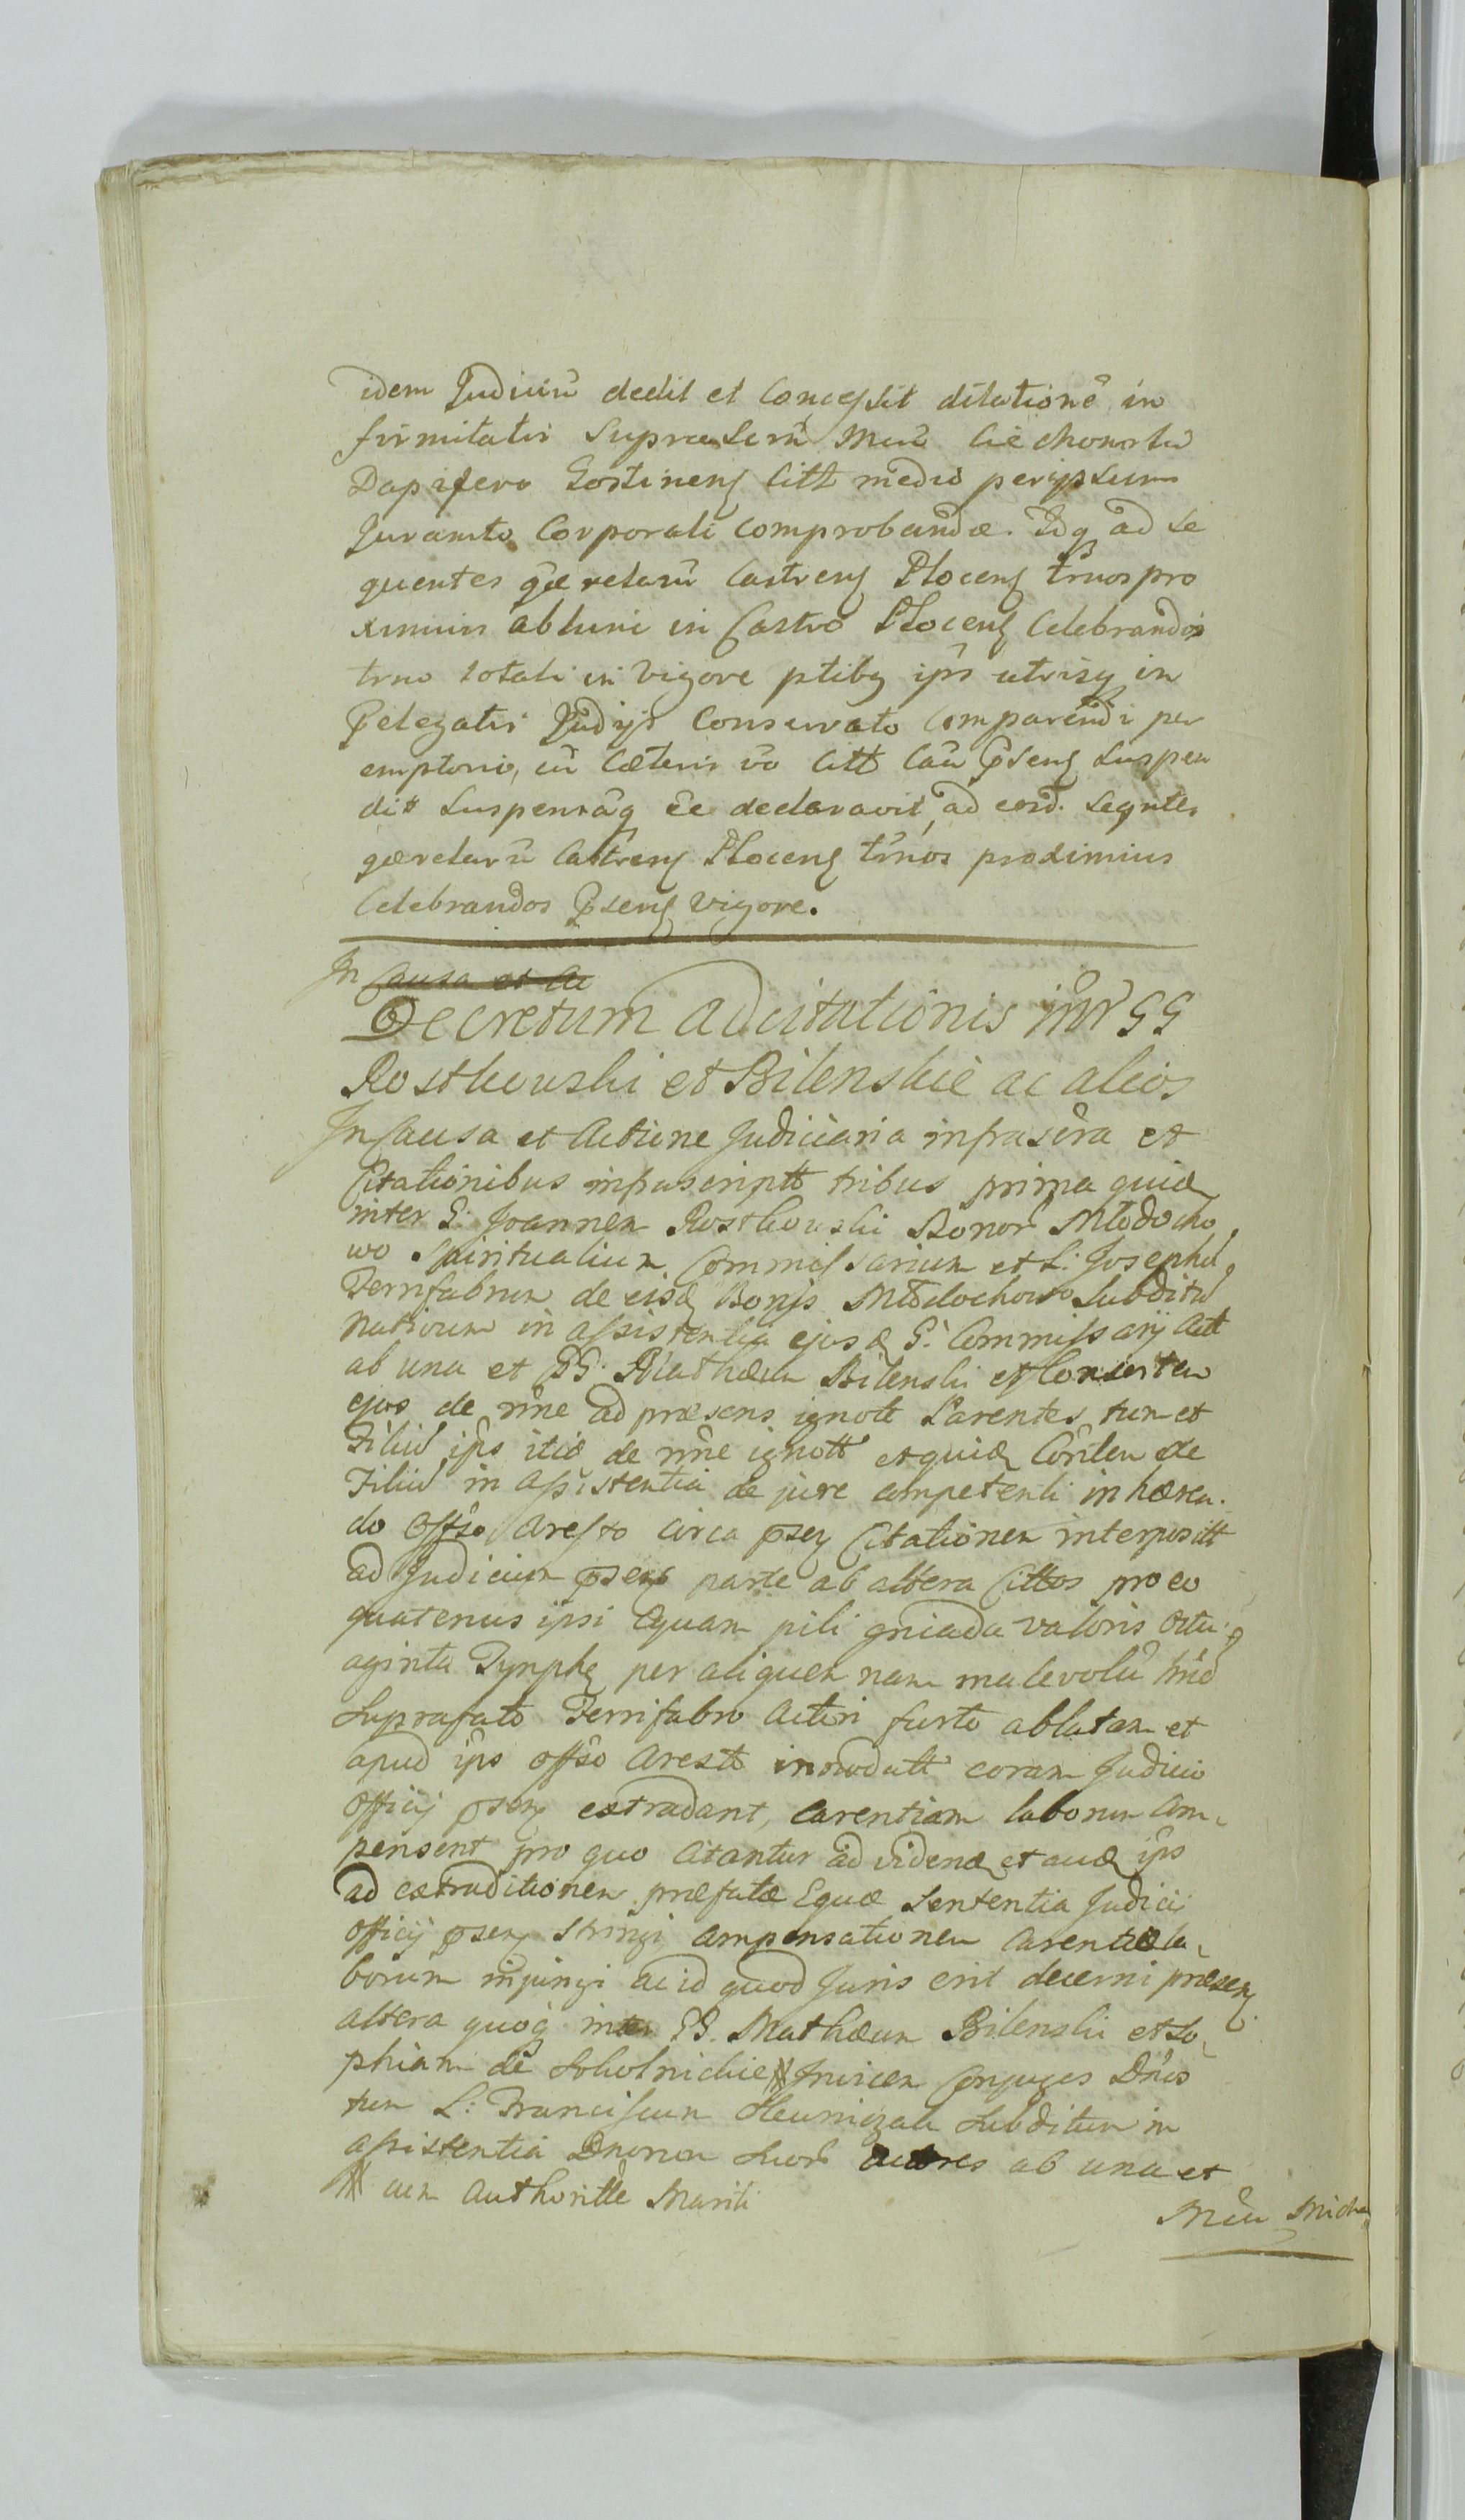 idem Judiciū dedit et Concessit dilationē in
firmitatis suprascrū Mū Ciechomsku
Dapifero Gostinens Citt medio peripsum
Juramto Corporali comprobandæ. Idq ad se
quentes quærelarū Castrens Plocens trnos pro
ximius abhinc in Castro Plocens Celebrandos
trno totali in vigore ptibq ips utrisq in
Delegatis Judijs Conservato Comparendi per
emptorio, cū Cæteris vo Citt Caū pseng suspen
dit suspensāq ee declaravit, ad eosd. seqntes
quærelarū Castrens Plocens trnos proximius
Celebrandos pseng vigore.
In Causa et Ac
Decretum adcitationis inr GG
Rostkowski et Bilenskie ac alios
In Causa et Actione Judiciaria infrascra et
Citationibus infrascriptt tribus prima quid
inter G. Joannem Rostkowski Bonor Młodocho
wo Spiritualium Commissarium et L. Josephū
Ferrifabrum de eisd Bonis Młodochowo Subditū
Nativum in assistentia ejusd G. Commissarij Act
ab una et GG. Mathæum Bilenski et Consortem
ejus de nne ad præsens ignott Parentes tum et
Filiū ips itid de nne ignott et quid Consortem de
Filiū in assistentia de jure competenti inhæren.
do offso Aresto circa psen Citationem interpositt
ad Judicium psens parte ab altera Cittos pro eo
quatenus ipsi Equam pili gniada valoris octu
aginta Tynph per aliquem nam malevolū hnd
suprafato Ferrifabro Actori furto ablatam et
apud ips offso Arestt innodatt coram Judicio
Officij psens extradant, Carentiam laborum Com
pensent pro quo Citantur ad videnḍ et auḍ ips
ad extraditionem præfatæ Equæ Sententia Judicij
Officij psens stringi Compensationem Carentiæ la
borum injungi ac id quod Juris erit decerni præsens
altera quoq inter GG. Mathæum Bilenski et So
phiam de Sokolnickie # invicem Conjuges Dnos
tum L: Franciscum Subditum in
assistentia Dnorum suor Actores ab una et
# cum Authoritte Mariti
Mcū Micha